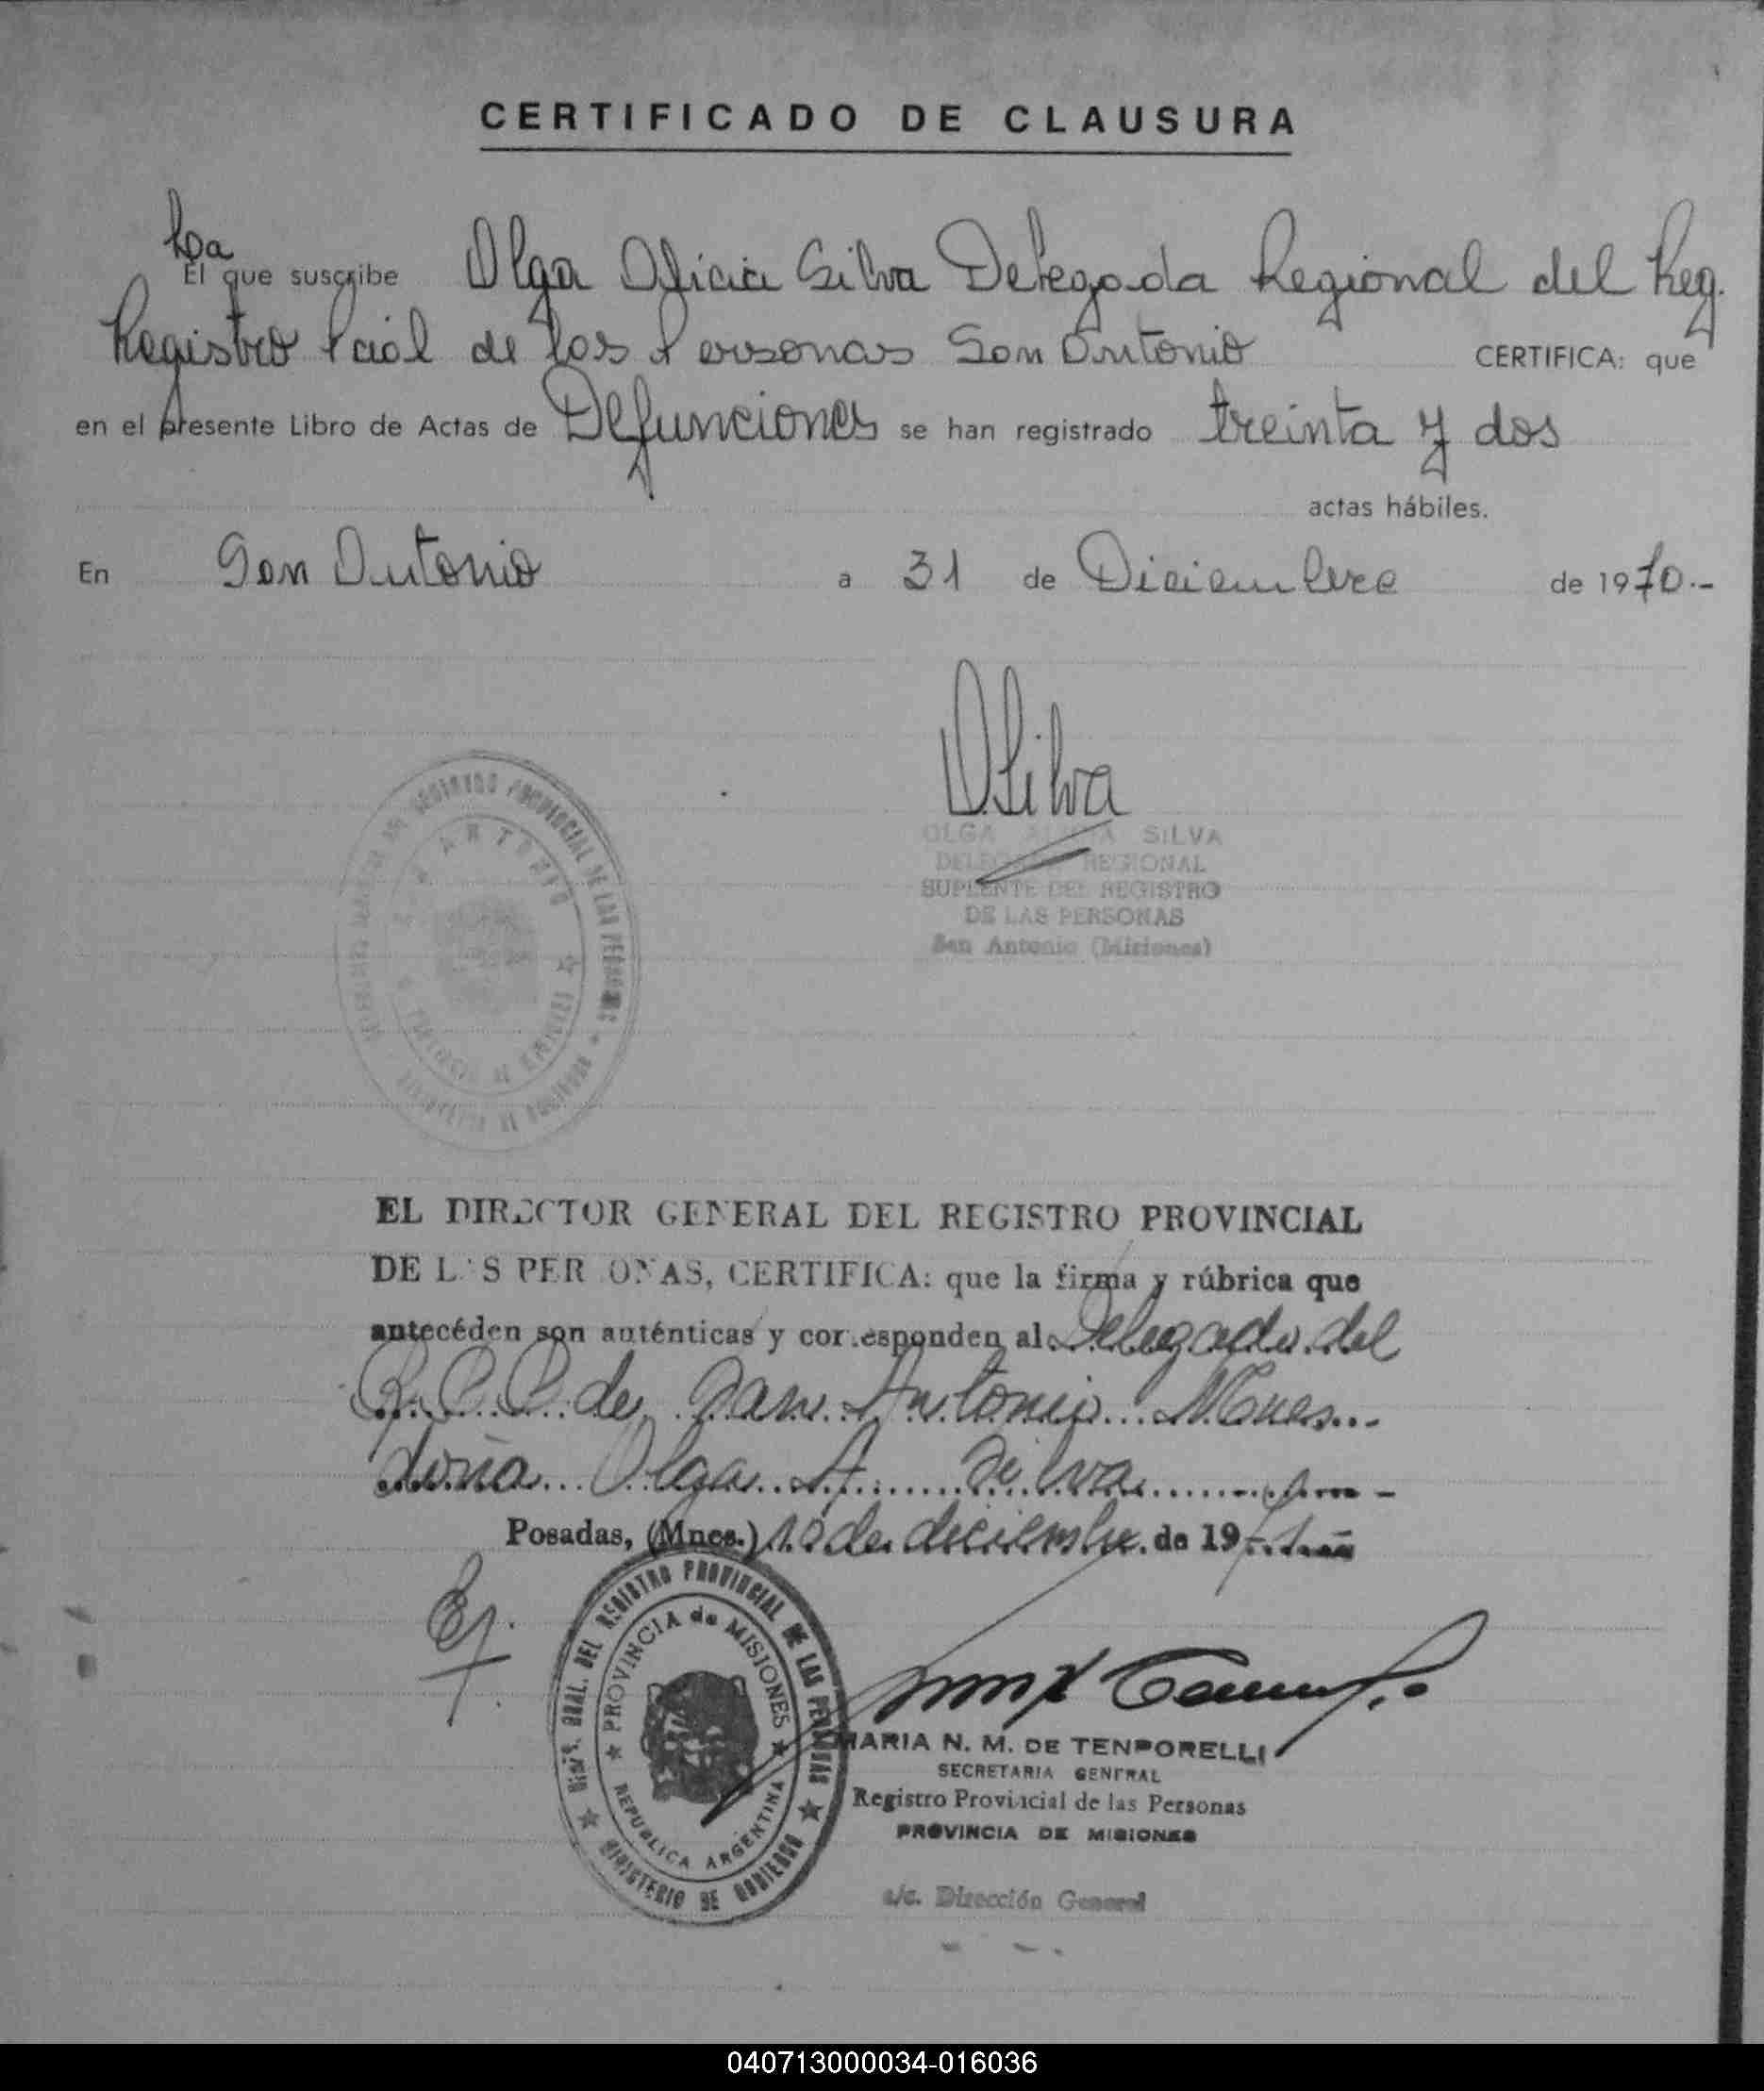 CERTIFICADO DE CLAUSURA
La
El que suscribe Olga Alicia Silva Delegada Regional del Reg.
Registro Pcial de las Personas San Antonio CERTIFICA: que
en el presente Libro de Actas de Defunciones se han registrado treinta y dos
actas hábiles.
En San Antonio a 31 de Diciembre de 1970.-
OSilva
OLGA ALICIA SILVA
DELEGADA REGIONAL
SUPLENTE DEL REGISTRO
DE LAS PERSONAS
San Antonio (Misiones)
REGISTRO PROVINCIAL DE LAS PERSONAS
EL DIRECTOR GENERAL DEL REGISTRO PROVINCIAL
DE LAS PERSONAS, CERTIFICA: que la firma y rúbrica que
antecéden son auténticas y corresponden al Delegado del
R.P.P. de San Antonio Mnes
doña Olga A. Silva
Posadas, (Mnes.) de diciembre de 197
DEL REGISTRO PROVINCIAL DE LAS PERSONAS
MINISTERIO DE GOBIERNO
PROVINCIA de MISIONES
REPUBLICA ARGENTINA
MARIA N. M. DE TENPORELLI
SECRETARIA GENERAL
Registro Provincial de las Personas
PROVINCIA DE MISIONES
a/c. Dirección General
040713000034-016036